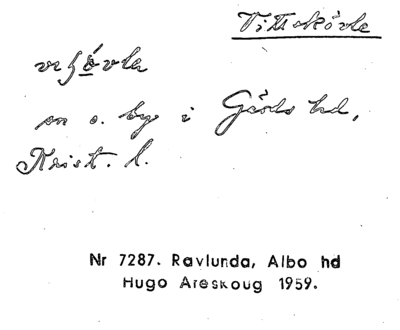 Vittskövle
sn o. by i Gärds hd,
Krist. l.
Nr 7287. Ravlunda, Albo hd
Hugo Areskoug 1959.